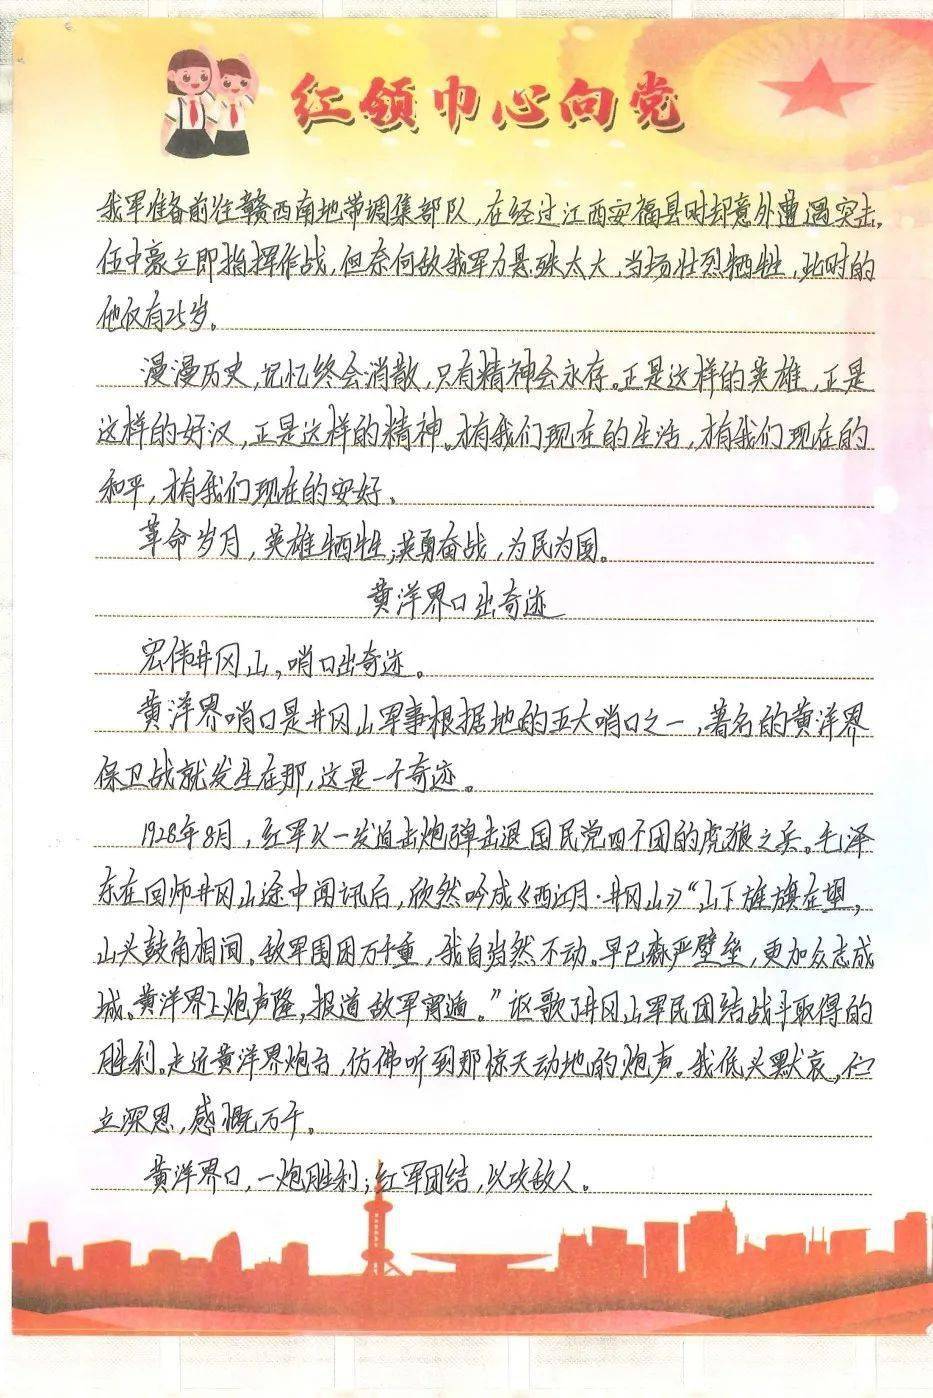 红领巾心向党
我军准备前往赣西南地带调集部队,在经过江西安福县时却意外遭遇突击。
伍中豪立即指挥作战,但奈何敌我军力悬殊太大,当场壮烈牺牲,此时的
他仅有25岁。
漫漫历史,记忆终会消散,只有精神会永存。正是这样的英雄,正是
这样的好汉,正是这样的精神。才有我们现在的生活,才有我们现在的
和平,才有我们现在的安好。
革命岁月,英雄牺牲;英勇奋战,为民为国。
黄洋界口出奇迹
宏伟井冈山,哨口出奇迹。
黄洋界哨口是井冈山军事根据地的五大哨口之一,著名的黄洋界
保卫战就发生在那,这是一个奇迹。
1928年8月,红军以一发迫击炮弹击退国民党四个团的虎狼之兵。毛泽
东在回师井冈山途中闻讯后,欣然吟成《西江月·井冈山》“山下旌旗在望,
山头鼓角相闻。敌军围困万千重,我自岿然不动。早已森严壁垒,更加众志成
城。黄洋界上炮声隆,报道敌军宵遁。”讴歌了井冈山军民团结战斗取得的
胜利。走近黄洋界炮台,仿佛听到那惊天动地的炮声。我低头默哀,伫
立深思,感慨万千。
黄洋界口,一炮胜利;红军团结,以攻敌人。